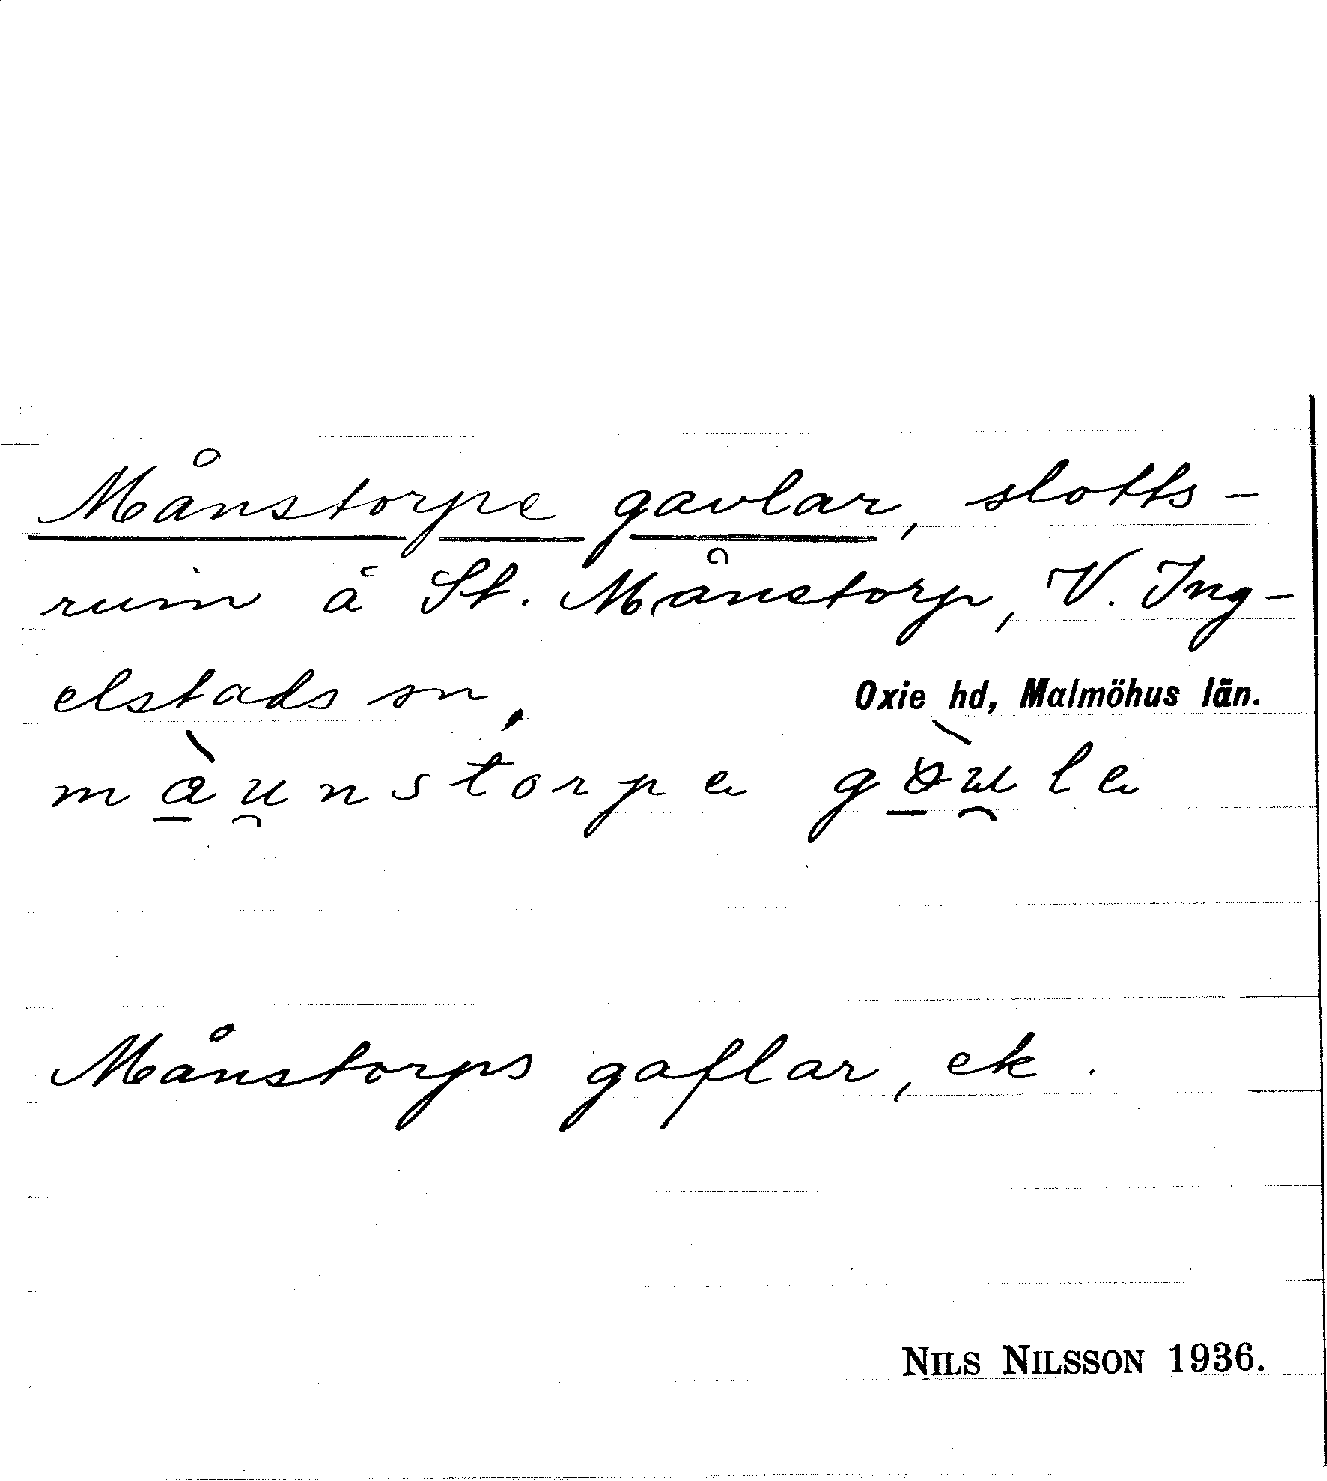 Månstorpe gavlar, slotts-
ruin å St. Månstorp, V. Ing-
elstads sn, Oxie hd, Malmöhus län.
màu̯nstórpe gàu̯le
Månstorps gaflar, ek.
NILS NILSSON 1936.